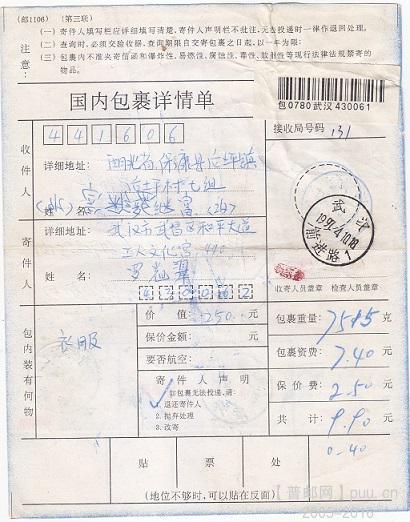 (邮1106) (第三联)
注意:
(一) 寄件人填写栏应详细填写清楚,寄件人声明栏不批注,无法投递时一律作退回处理。
(二) 查询时,必须交验收据,查询期限自交寄包裹之日起,以一年为限;
(三) 包裹内不准夹寄信函和爆炸性、易燃性、腐蚀性、毒性、放射性等现行法律法规禁寄的物品。
国内包裹详情单
包0780 武汉430061
接收局号码 131
441606
收件人
详细地址: 湖北省保康县后坪镇
姓名
寄件人
详细地址: 武汉市武昌区和平大道
工人文化宫
姓名:
430062
武汉
收寄人员盖章 检查人员盖章
包内装有何物
衣服
价值: 250 元
保价金额: 元
要否航空:
寄件人声明
如包裹无法投递,请:
✓1.退还寄件人
2.抛弃处理
3.改寄
包裹重量: 7515 克
包裹资费: 7.40 元
保价费: 2.50 元
共计: 9.90 元
0.40
贴票处
(地位不够时,可以贴在反面)
【普邮网】puu.cn
2005-2016